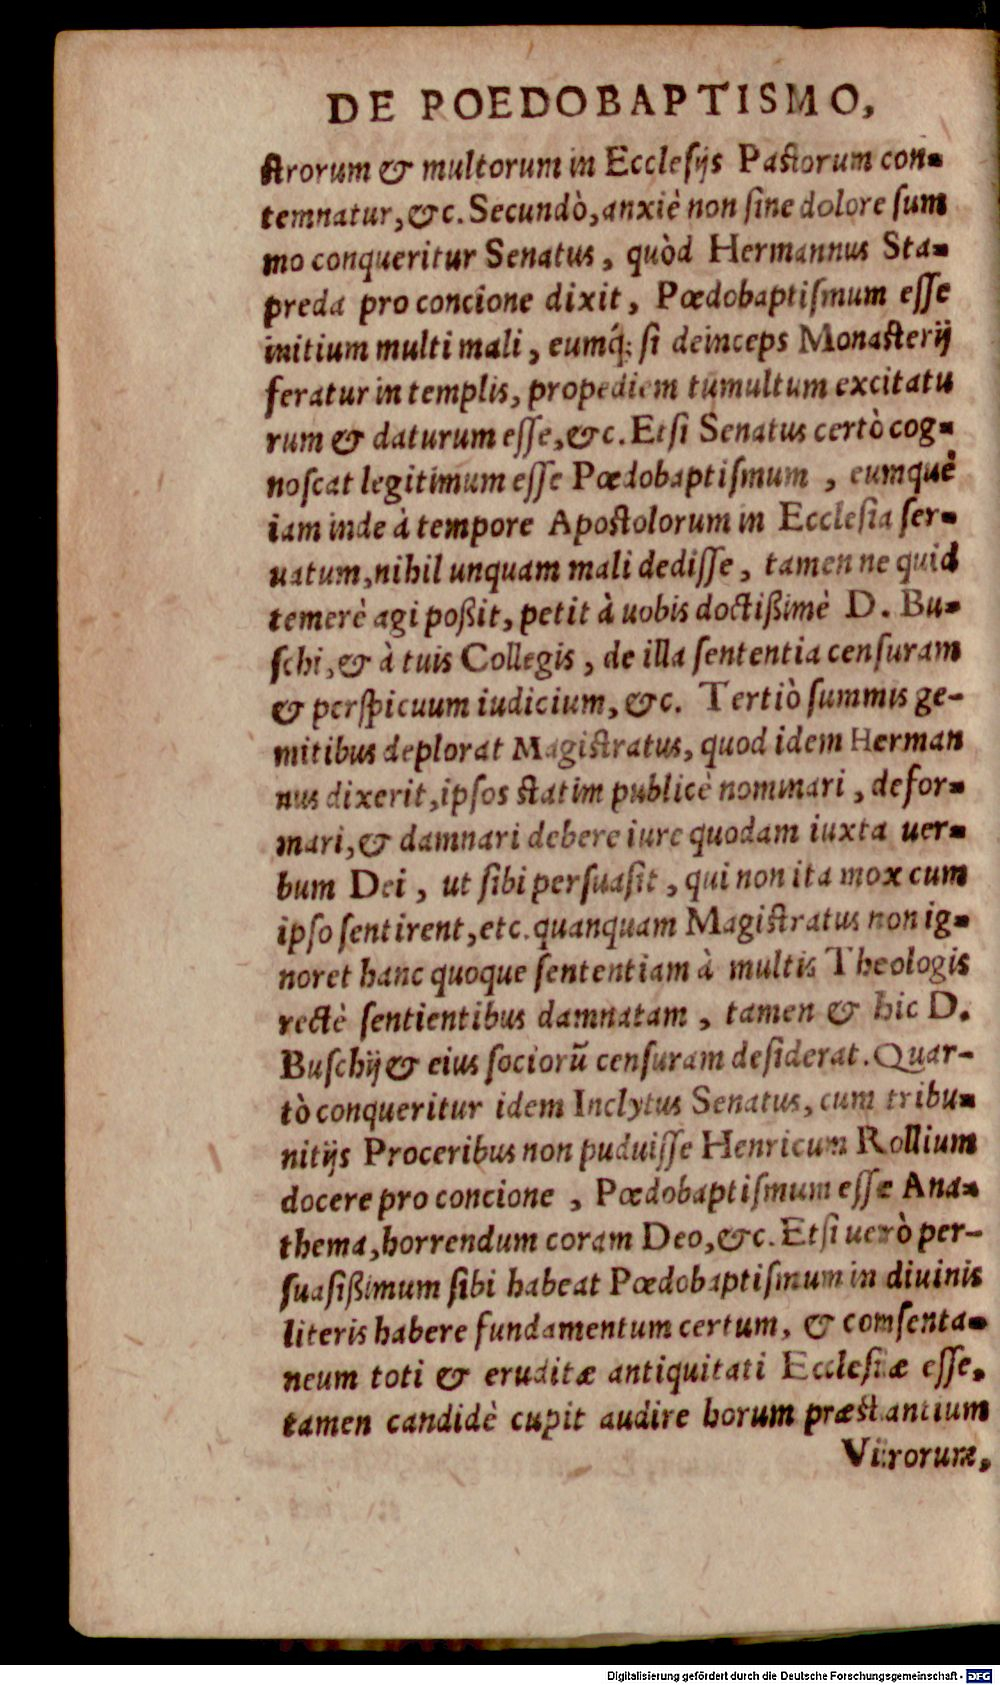 DE POEDOBAPTISMO,
ſtrorum & multorum in Eccleſijs Paſtorum con-
temnatur, &c. Secundò, anxiè non ſine dolore ſum
mo conqueritur Senatus, quòd Hermannus Sta-
preda pro concione dixit, Pœdobaptiſmum eſſe
initium multi mali, eumq́; ſi deinceps Monaſterij
feratur in templis, propediem tumultum excitatu
rum & daturum eſſe, &c. Etſi Senatus certò cog-
noſcat legitimum eſſe Pœdobaptiſmum, eumque
iam inde à tempore Apoſtolorum in Eccleſia ſer-
uatum, nihil unquam mali dediſſe, tamen ne quid
temerè agi poßit, petit à uobis doctißimè D. Bu-
ſchi, & à tuis Collegis, de illa ſententia cenſuram
& perſpicuum iudicium, &c. Tertiò ſummis ge-
mitibus deplorat Magiſtratus, quod idem Herman
nus dixerit, ipſos ſtatim publicè nominari, defor-
mari, & damnari debere iure quodam iuxta uer-
bum Dei, ut ſibi perſuaſit, qui non ita mox cum
ipſo ſentirent, etc. quanquam Magiſtratus non ig-
noret hanc quoque ſententiam à multis Theologis
rectè ſentientibus damnatam, tamen & hic D.
Buſchij & eius ſociorũ cenſuram deſiderat. Quar-
tò conqueritur idem Inclytus Senatus, cum tribu-
nitijs Proceribus non puduiſſe Henricum Rollium
docere pro concione, Pœdobaptiſmum eſſe Ana-
thema, horrendum coram Deo, &c. Etſi uerò per-
ſuaſißimum ſibi habeat Pœdobaptiſmum in diuinis
literis habere fundamentum certum, & comſenta-
neum toti & eruditæ antiquitati Eccleſiæ eſſe,
tamen candidè cupit audire horum præſtantium
Virorum,
Digitalisierung gefördert durch die Deutsche Forschungsgemeinschaft - DFG